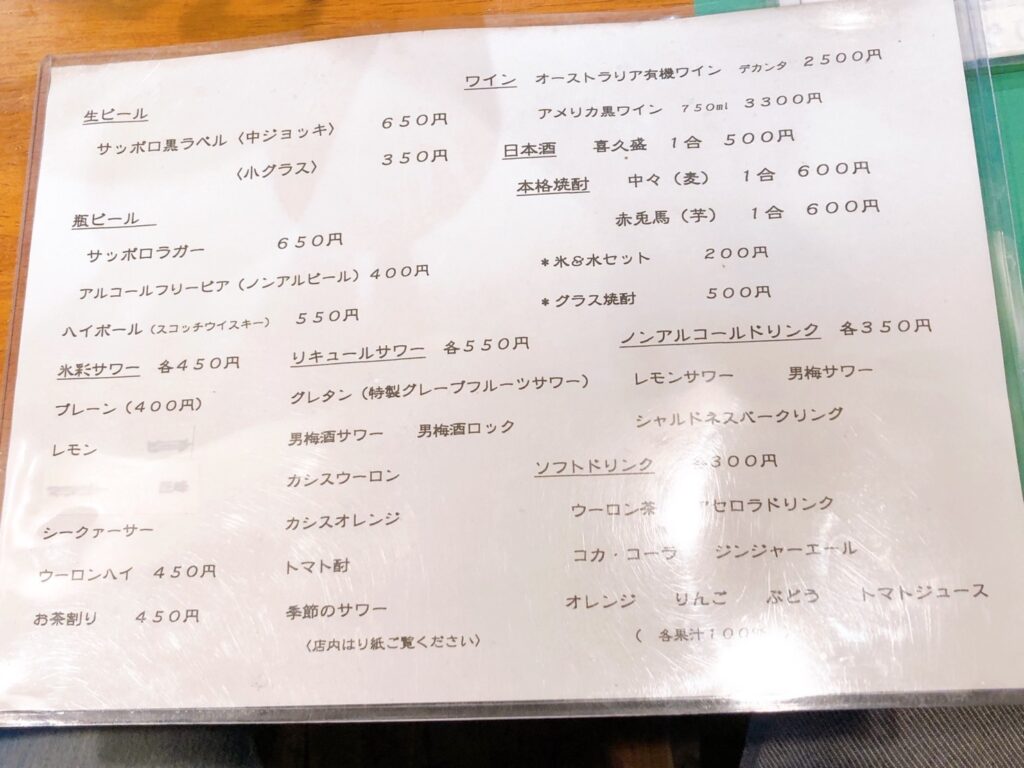 生ビール
サッポロ黒ラベル〈中ジョッキ〉 650円
〈小グラス〉 350円
瓶ビール
サッポロラガー 650円
アルコールフリービア(ノンアルビール)400円
ハイボール(スコッチウイスキー) 550円
氷彩サワー 各450円
プレーン(400円)
レモン
シークァーサー
ウーロンハイ 450円
お茶割り 450円
リキュールサワー 各550円
グレタン(特製グレープフルーツサワー)
男梅酒サワー 男梅酒ロック
カシスウーロン
カシスオレンジ
トマト酎
季節のサワー
〈店内はり紙ご覧ください〉
ワイン オーストラリア有機ワイン デカンタ 2500円
アメリカ黒ワイン 750ml 3300円
日本酒 喜久盛 1合 500円
本格焼酎 中々(麦) 1合 600円
赤兎馬(芋) 1合 600円
*氷&水セット 200円
*グラス焼酎 500円
ノンアルコールドリンク 各350円
レモンサワー 男梅サワー
シャルドネスパークリング
ソフトドリンク 各300円
ウーロン茶 アセロラドリンク
コカ・コーラ ジンジャーエール
オレンジ りんご ぶどう トマトジュース
( 各果汁100%